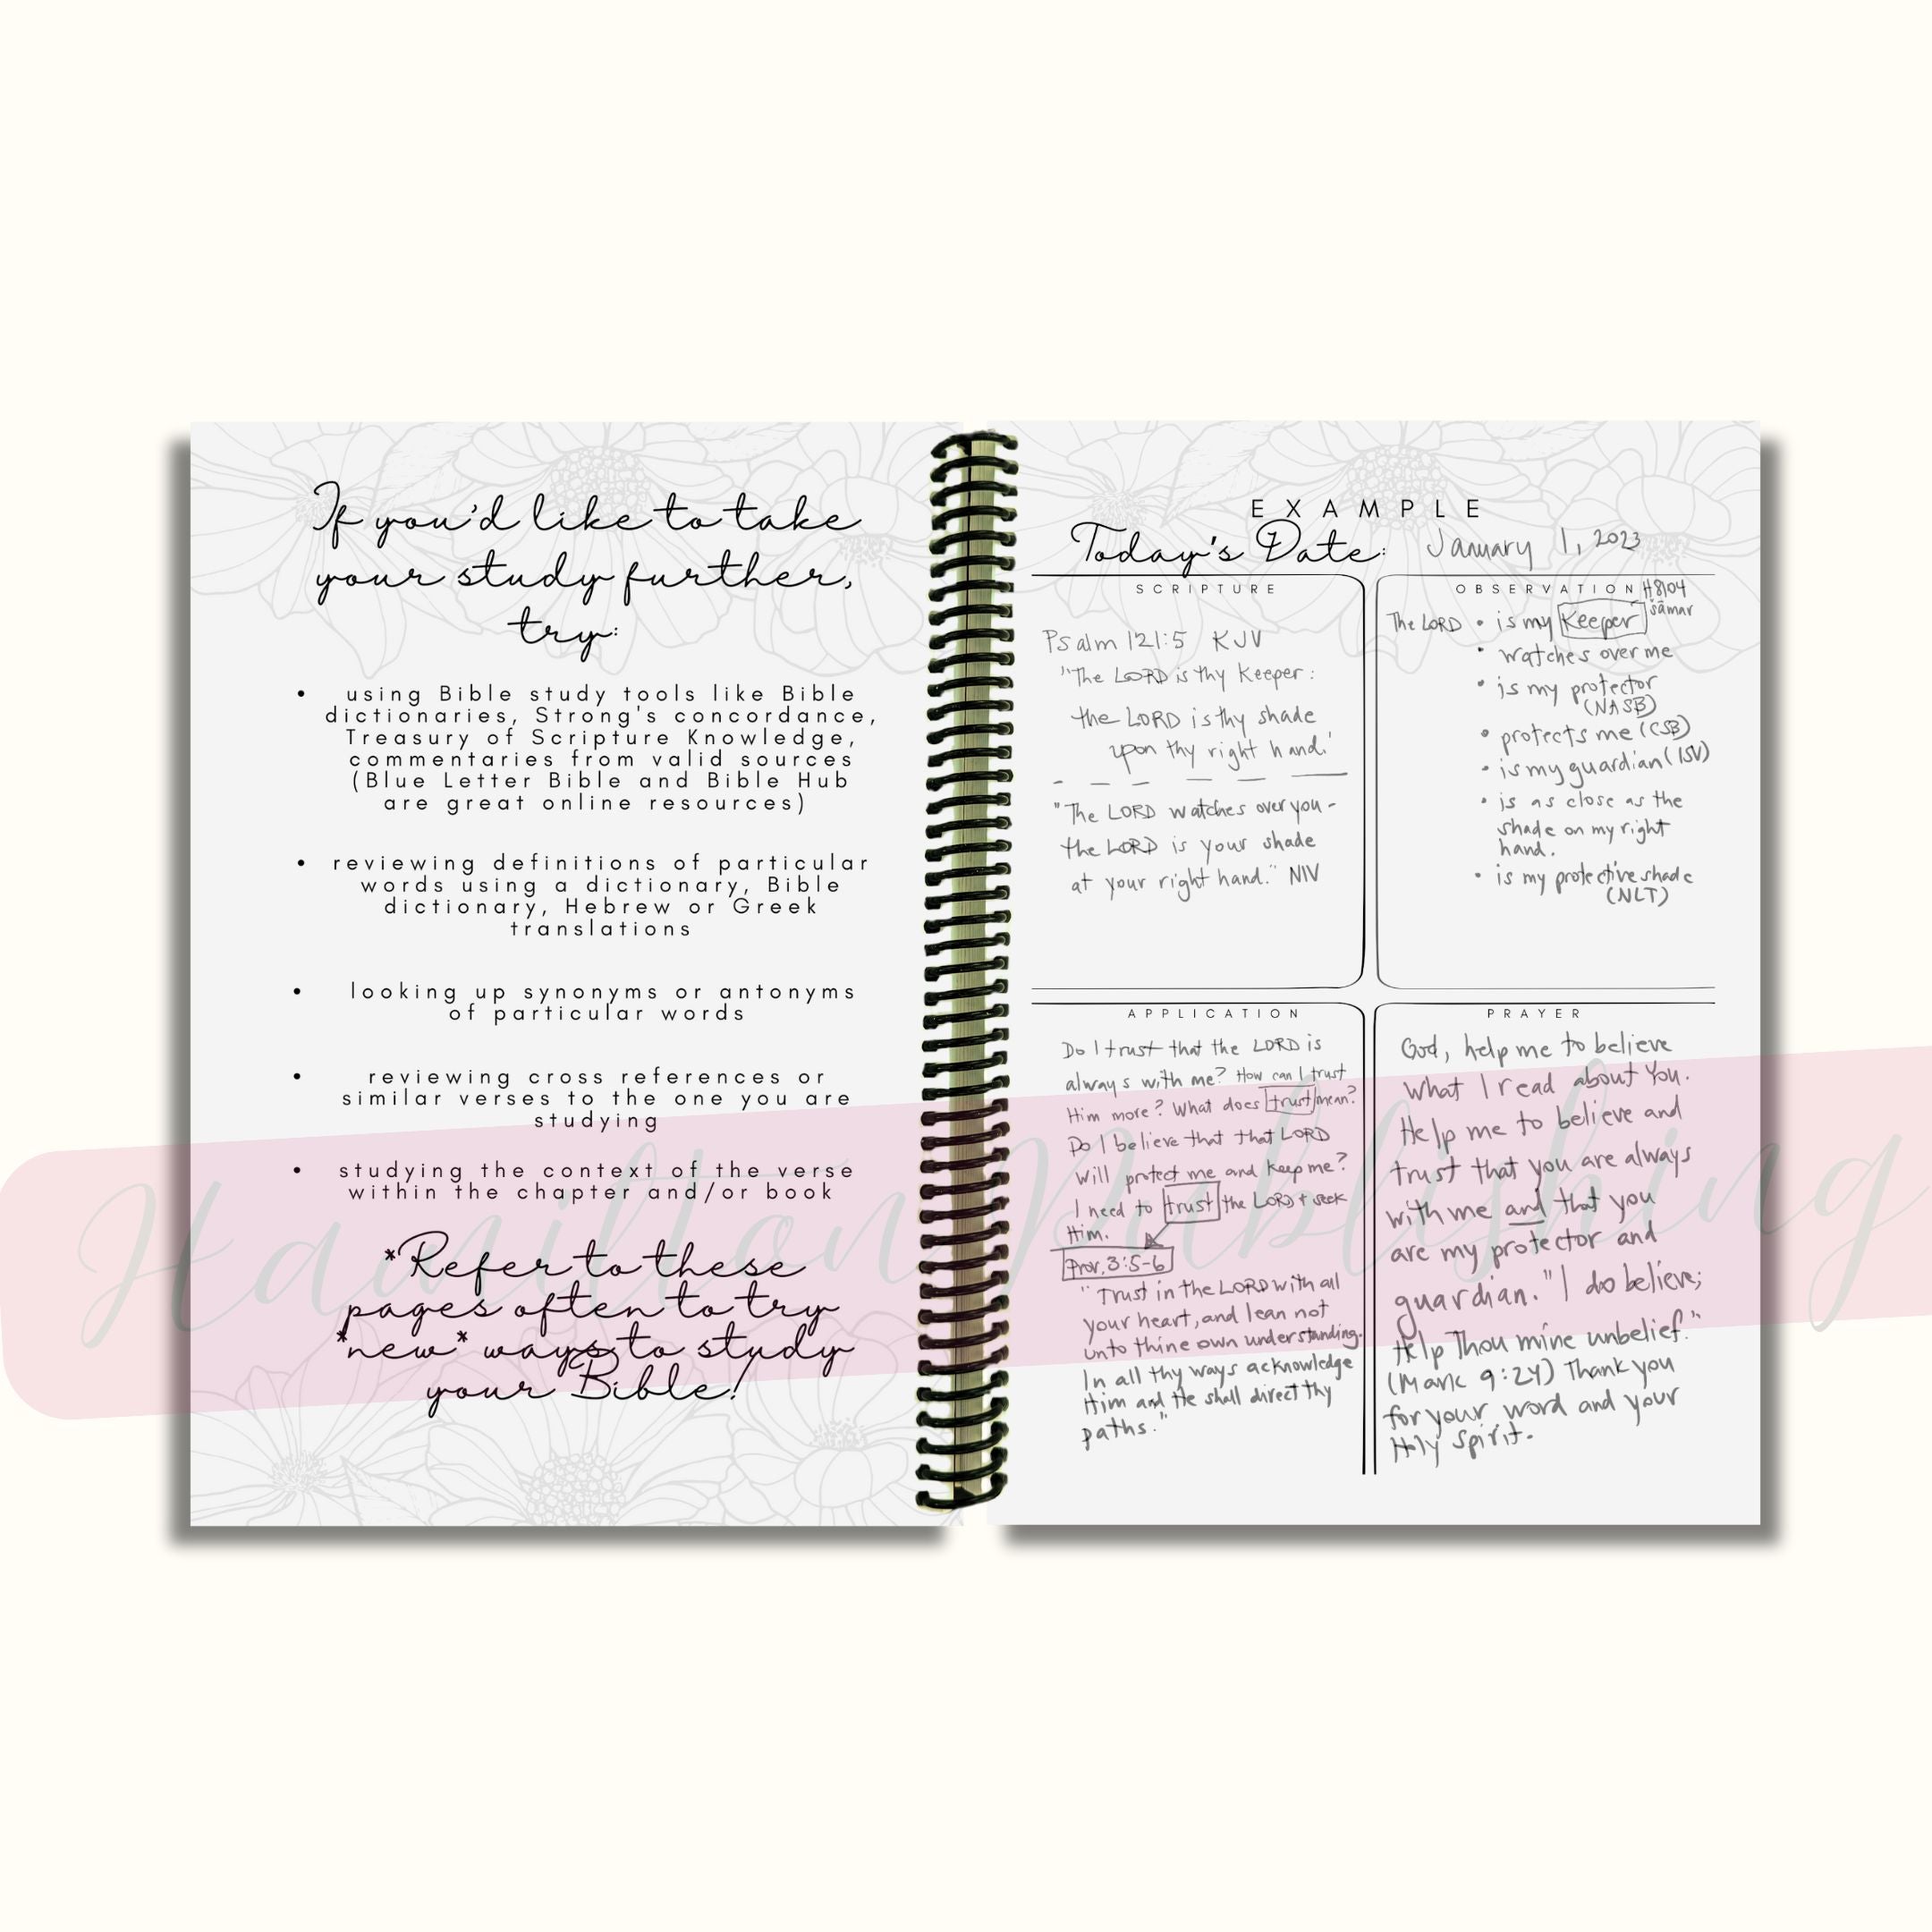 If you'd like to take
your study further,
try:
• using Bible study tools like Bible
dictionaries, Strong's concordance,
Treasury of Scripture Knowledge,
commentaries from valid sources
(Blue Letter Bible and Bible Hub
are great online resources)
• reviewing definitions of particular
words using a dictionary, Bible
dictionary, Hebrew or Greek
translations
• looking up synonyms or antonyms
of particular words
• reviewing cross references or
similar verses to the one you are
studying
• studying the context of the verse
within the chapter and/or book
*Refer to these
pages often to try
*new* ways to study
your Bible!
EXAMPLE
Today's Date: January 1, 2023
SCRIPTURE
Psalm 121:5 KJV
"The LORD is thy Keeper:
the LORD is thy shade
upon thy right hand."
"The LORD watches over you-
the LORD is your shade
at your right hand." NIV
OBSERVATION H8104
šāmar
The LORD • is my Keeper
• watches over me
• is my protector
(NASB)
• protects me (CSB)
• is my guardian (ISV)
• is as close as the
shade on my right
hand.
• is my protective shade
(NLT)
APPLICATION
Do I trust that the LORD is
always with me? How can I trust
Him more? What does trust mean?
Do I believe that that LORD
will protect me and keep me?
I need to trust the LORD + seek
Him.
Prov. 3:5-6
"Trust in the LORD with all
your heart, and lean not
unto thine own understanding.
In all thy ways acknowledge
Him and He shall direct thy
paths."
PRAYER
God, help me to believe
what I read about You.
Help me to believe and
trust that you are always
with me and that you
are my protector and
guardian. "I do believe;
Help Thou mine unbelief."
(Mark 9:24) Thank you
for your word and your
Holy Spirit.
Hamilton Publishing